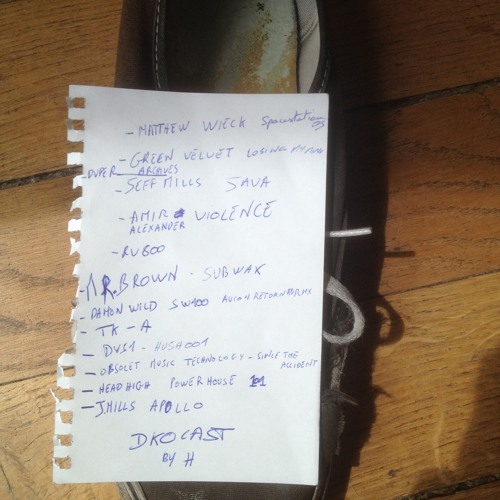 - MATTHEW WIECK Spacestation
- GREEN VELVET LOSING MY MIND
- DUPER ARCHIVES
- JEFF MILLS SAVA
- AMIR VIOLENCE
ALEXANDER
- RV600
- MR. BROWN - SUBWAX
- DAMON WILD SW100 AVION RETORNADO RMX
- TK - A
- DVS1 - HUSH001
- OBSOLET MUSIC TECHNOLOGY - SINCE THE ACCIDENT
- HEAD HIGH POWER HOUSE
- J.MILLS APOLLO
DKOCAST
BY H